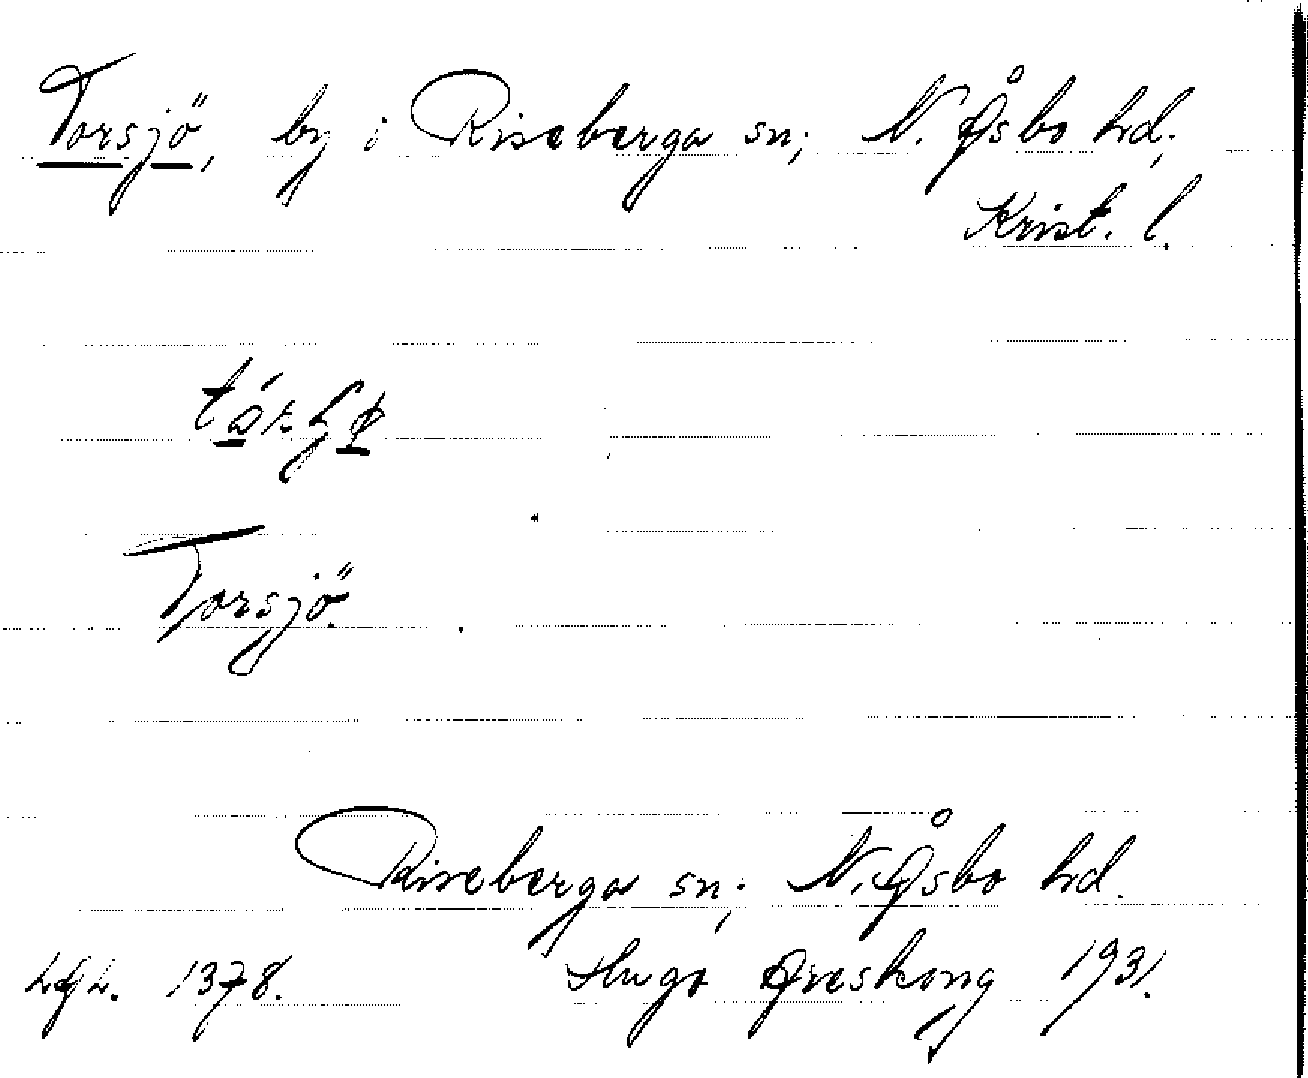 Torsjö, by i Riseberga sn; N. Åsbo hd;
Krist. l.
Torsjö.
Riseberga sn; N. Åsbo hd.
1378. Hugo Areskoug 1931.